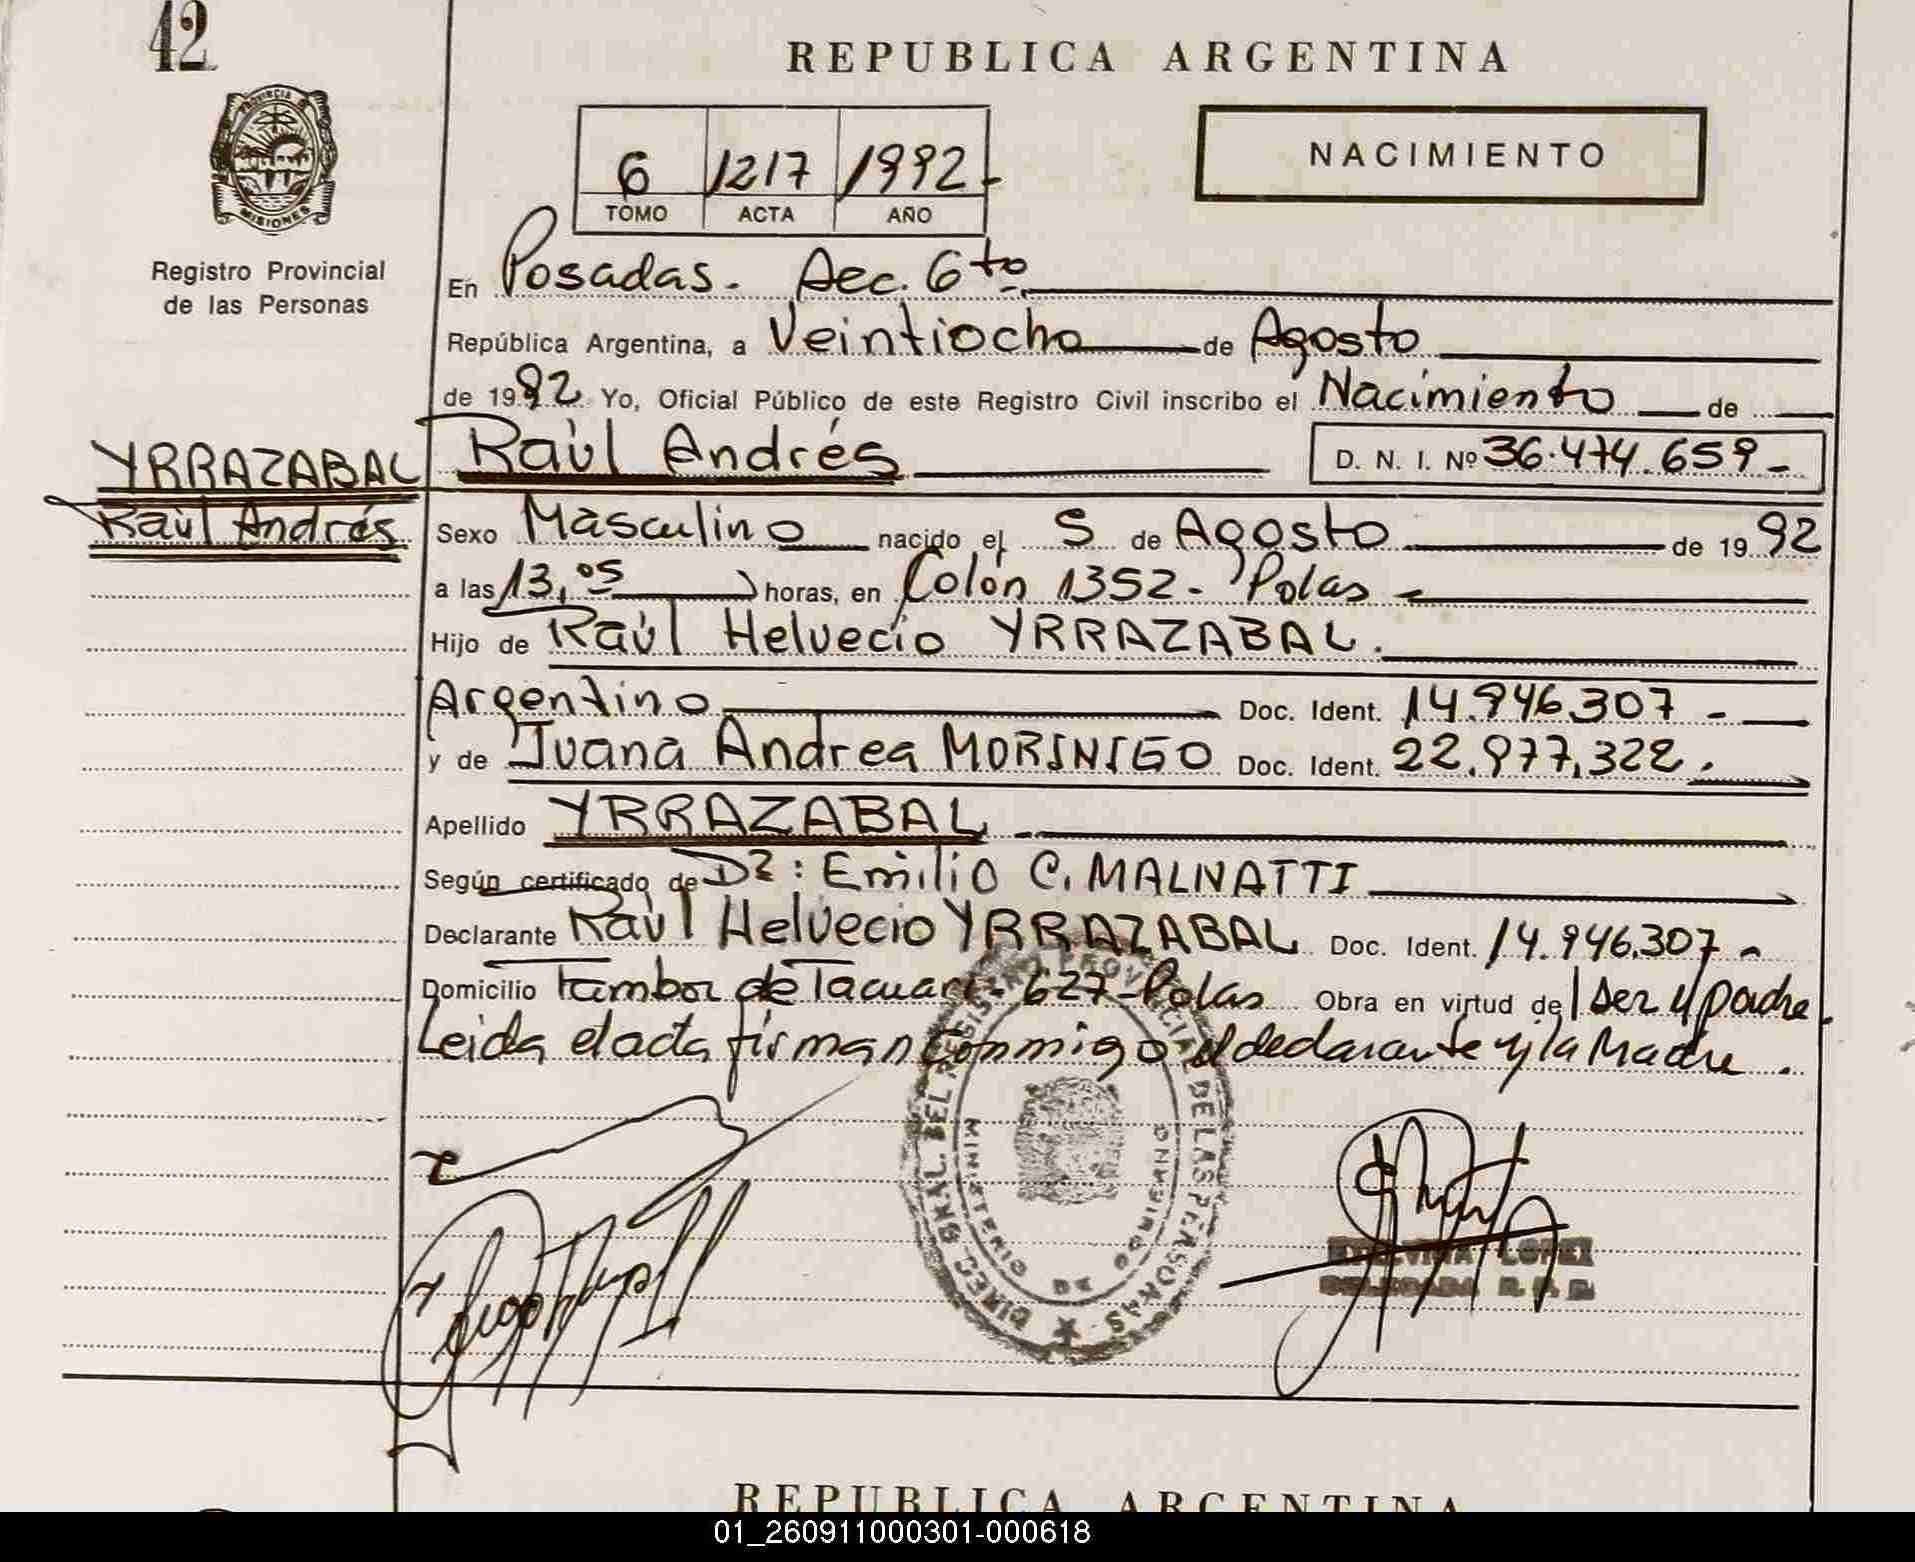 42
REPUBLICA ARGENTINA
PROVINCIA DE
MISIONES
Registro Provincial
de las Personas
6 1217 1992-
TOMO ACTA AÑO
NACIMIENTO
En Posadas. Sec. 6to
República Argentina, a Veintiocho de Agosto
de 1992 Yo, Oficial Público de este Registro Civil inscribo el Nacimiento de
YRRAZABAL
Raúl Andrés
Raúl Andrés D. N. I. Nº 36.474.659-
Sexo Masculino nacido el 5 de Agosto de 1992
a las 13,05 horas, en Colón 1352- Pdas
Hijo de Raúl Helvecio YRRAZABAL.
Argentino Doc. Ident. 14.946.307 -
y de Juana Andrea MORINIGO Doc. Ident. 22.977.322.
Apellido YRRAZABAL
Según certificado de Dr: Emilio C. MALNATTI
Declarante Raúl Helvecio YRRAZABAL Doc. Ident. 14.946.307-
Domicilio Tambor de Tacuarí- 627-Pdas Obra en virtud de ser el padre.
Leida el acta firman conmigo el declarante y la Madre.
DIREC. GRAL. DEL REGISTRO PROVINCIAL DE LAS PERSONAS
MINISTERIO DE GOBIERNO
LOPEZ
DELEGADA R. P. P.
REPUBLICA ARGENTINA
01_260911000301-000618